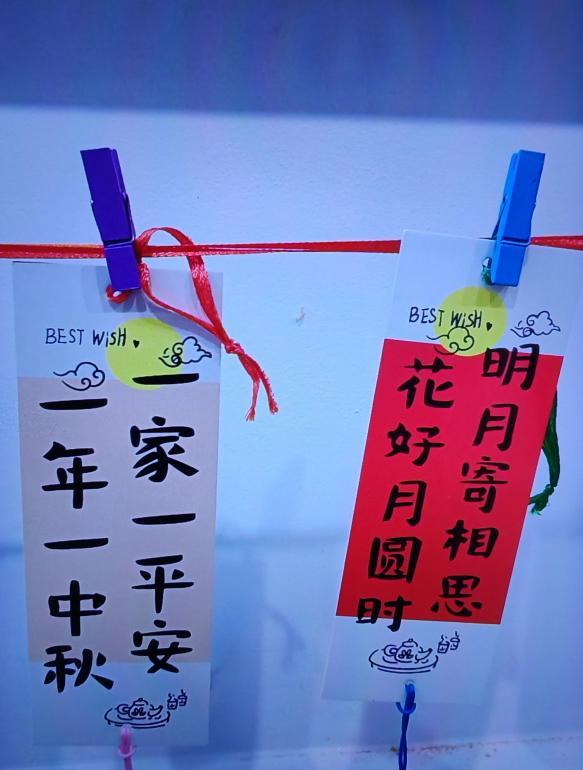 BEST WiSH
一家一平安
一年一中秋
BEST WiSH
明月寄相思
花好月圆时